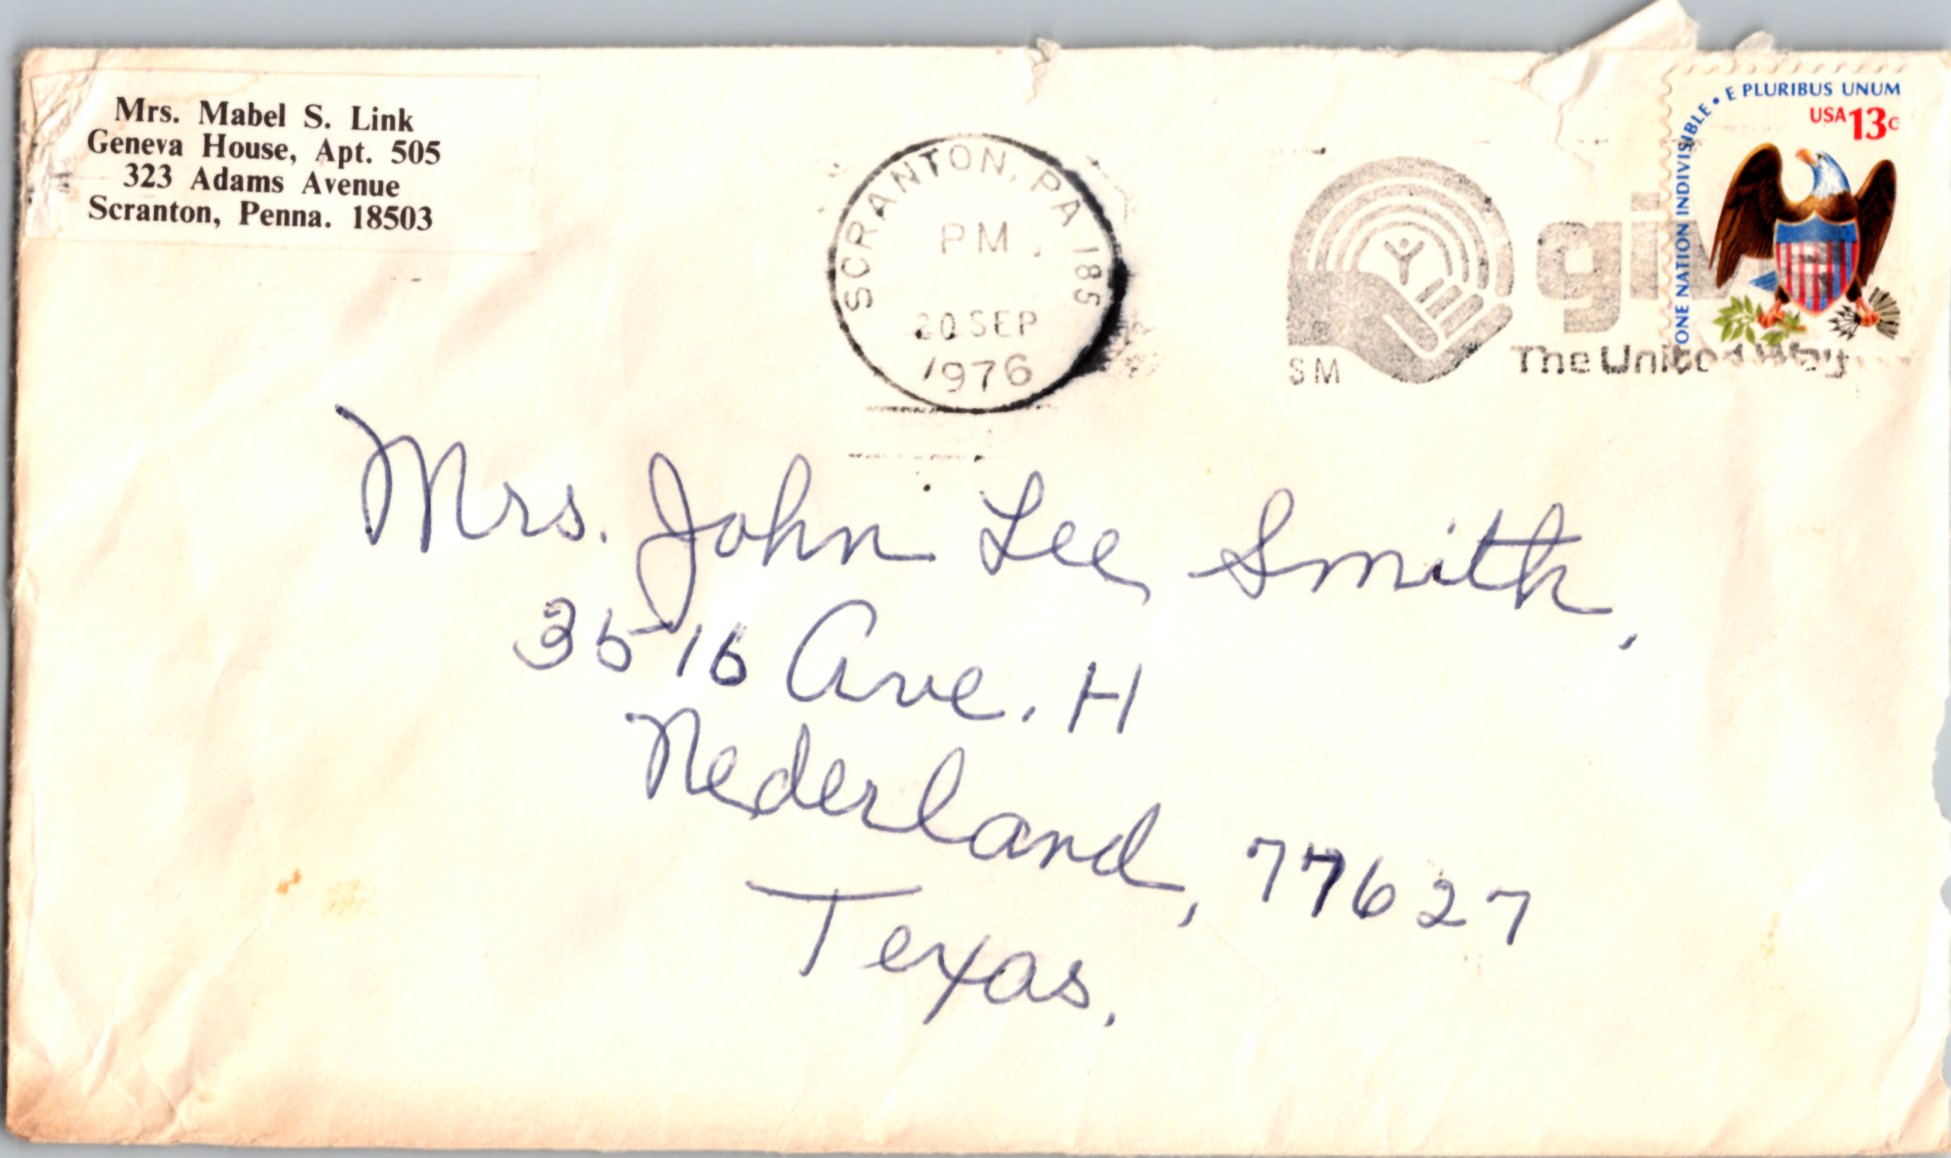 Mrs. Mabel S. Link
Geneva House, Apt. 505
323 Adams Avenue
Scranton, Penna. 18503
SCRANTON, PA 185
PM
20 SEP
1976
SM
giv
The United Way
ONE NATION INDIVISIBLE • E PLURIBUS UNUM
USA 13c
Mrs. John Lee Smith,
3516 Ave. H
Nederland, 77627
Texas.